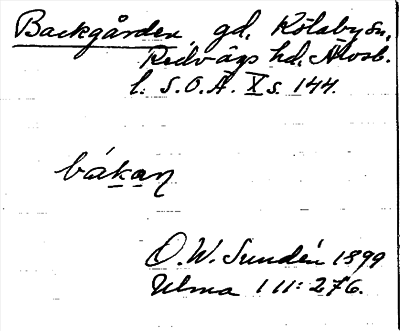 Backgården, gd, Kölaby sn,
Redvägs hd, Älvsb.
l. S.O.Ä. X s. 144.
båkan
O.W. Sundén 1899
Ulma 111:276.